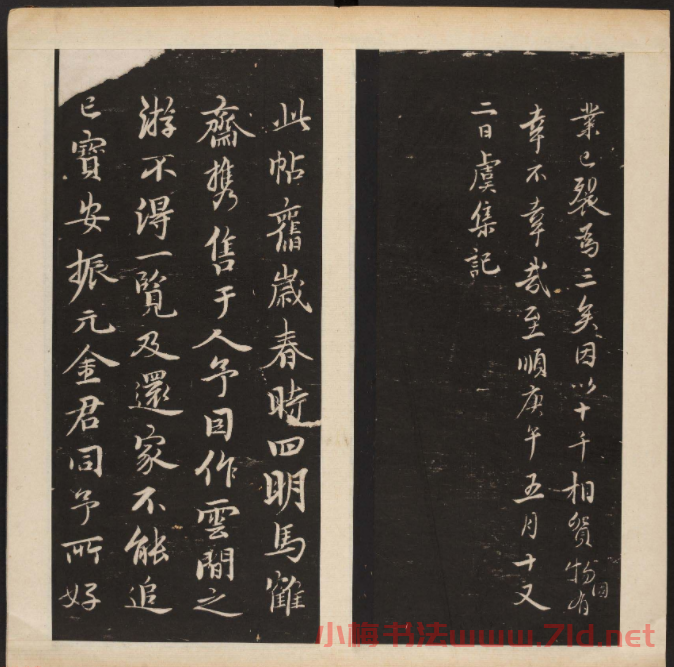 業已裂爲二矣因以十千相質物固有
幸不幸哉至順庚午五月十又
二日虞集記
此帖舊歲春時四明馬雔
齋携售于人予目作雲間之
游不得一覽及還家不能追
已寶安振元金君同予所好
小梅书法www.7ld.net